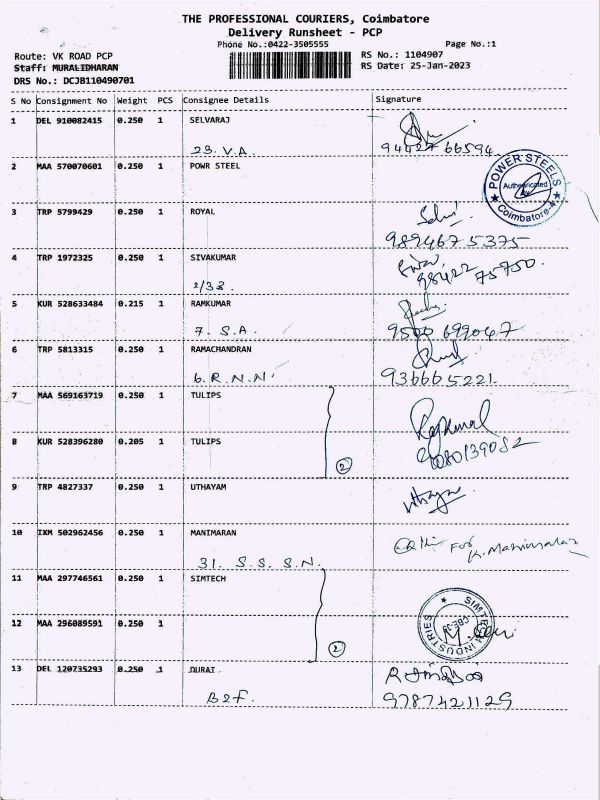 THE PROFESSIONAL COURIERS, Coimbatore
Delivery Runsheet - PCP
Phone No.:0422-3505555
Page No.:1
Route: VK ROAD PCP
RS No.: 1104907
Staff: MURALIDHARAN
RS Date: 25-Jan-2023
DRS No.: DCJB110490701
S No Consignment No Weight PCS Consignee Details Signature
1 DEL 910082415 0.250 1 SELVARAJ
23. V.A. 94427 66594
2 MAA 570070601 0.250 1 POWR STEEL
POWER STEELS
Authenticated
by
Coimbatore-4
3 TRP 5799429 0.250 1 ROYAL
9894675375
4 TRP 1972325 0.250 1 SIVAKUMAR
2/33. 98422 75750.
5 KUR 528633484 0.215 1 RAMKUMAR
7. S.A. 9500 699047
6 TRP 5813315 0.250 1 RAMACHANDRAN
6. R.N.N. 936665221
7 MAA 569163719 0.250 1 TULIPS
8 KUR 528396280 0.205 1 TULIPS
2
9 TRP 4827337 0.250 1 UTHAYAM
10 IXM 502962456 0.250 1 MANIMARAN
For
31. S. S. S.N.
11 MAA 297746561 0.250 1 SIMTECH
SIMTECH INDUSTRIES
12 MAA 296089591 0.250 1
2
13 DEL 120735293 0.250 1 DURAI
B2F. 9787421129